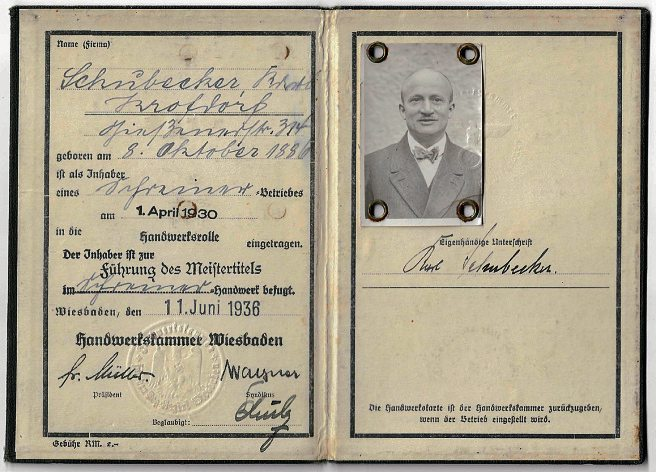 Name (Firma)
Schubecker, Karl
Krofdorf
Gießenerstr. 314
geboren am 8. Oktober 1886
ist als Inhaber
eines Schreiner-Betriebes
am 1. April 1930
in die Handwerksrolle eingetragen.
Der Inhaber ist zur
Führung des Meistertitels
im Schreiner-Handwerk befugt.
Wiesbaden, den 11. Juni 1936
Handwerkskammer Wiesbaden
Müller. Wagner
Präsident Syndikus
Beglaubigt:
Gebühr RM. 2.-
Eigenhändige Unterschrift
Karl Schubecker.
Die Handwerkskarte ist der Handwerkskammer zurückzugeben,
wenn der Betrieb eingestellt wird.